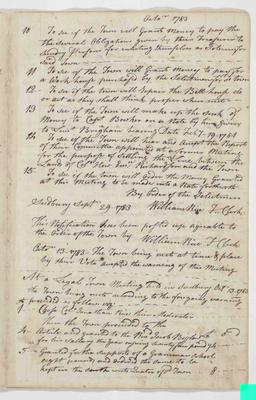 Octobr 1783
10 To see if the Town will Grant Money to pay the
the several Obligations given by their Treasurer to
sundry Persons for enlisting themselves as Soldiers for
said Town
11 To see if the Town will Grant Money to pay for
a Work house purchased by the Selectmen for sd Town
12 To see if the Town will repair the Bell house do
or act as they shall think proper when met
13 To see if the Town will make up the Stock of
Money to Capt
to Lieut Brigham bearing Date Feb 7. 19. 1781
14 To see if the Town will hear and accept the Report
of their Committee appointed at a former Meeting
for the purpose of settling the Line between the
Land of and the Town
15 To see if the Town will Order the Money Granted
at this Meeting to be made into a rate forthwith
By Order of the Selectmen
Sudbury Sept 29. 1783 William Rice T. Clerk
This Notification has been posted up agreable to
the Order of the Town by William Rice T Clerk
Octr 13. 1783. The Town being met at time & place
by their Vote accepted the warning of this Meeting
At a Legal Town Meeting held in Sudbury Oct 13. 1783
the Town being met according to the foregoing warning
& proceeded as follows viz
1 Chose Capt Jonathan Rice their Moderator
Then the Town proceeded to the
4 Article and granted to the Revd Jacob Bigelow
for his Sallary the year ensuing
5 Granted for the support of a Grammar school
eight pounds and voted the same to be
kept in the Quarter of sd Town 8